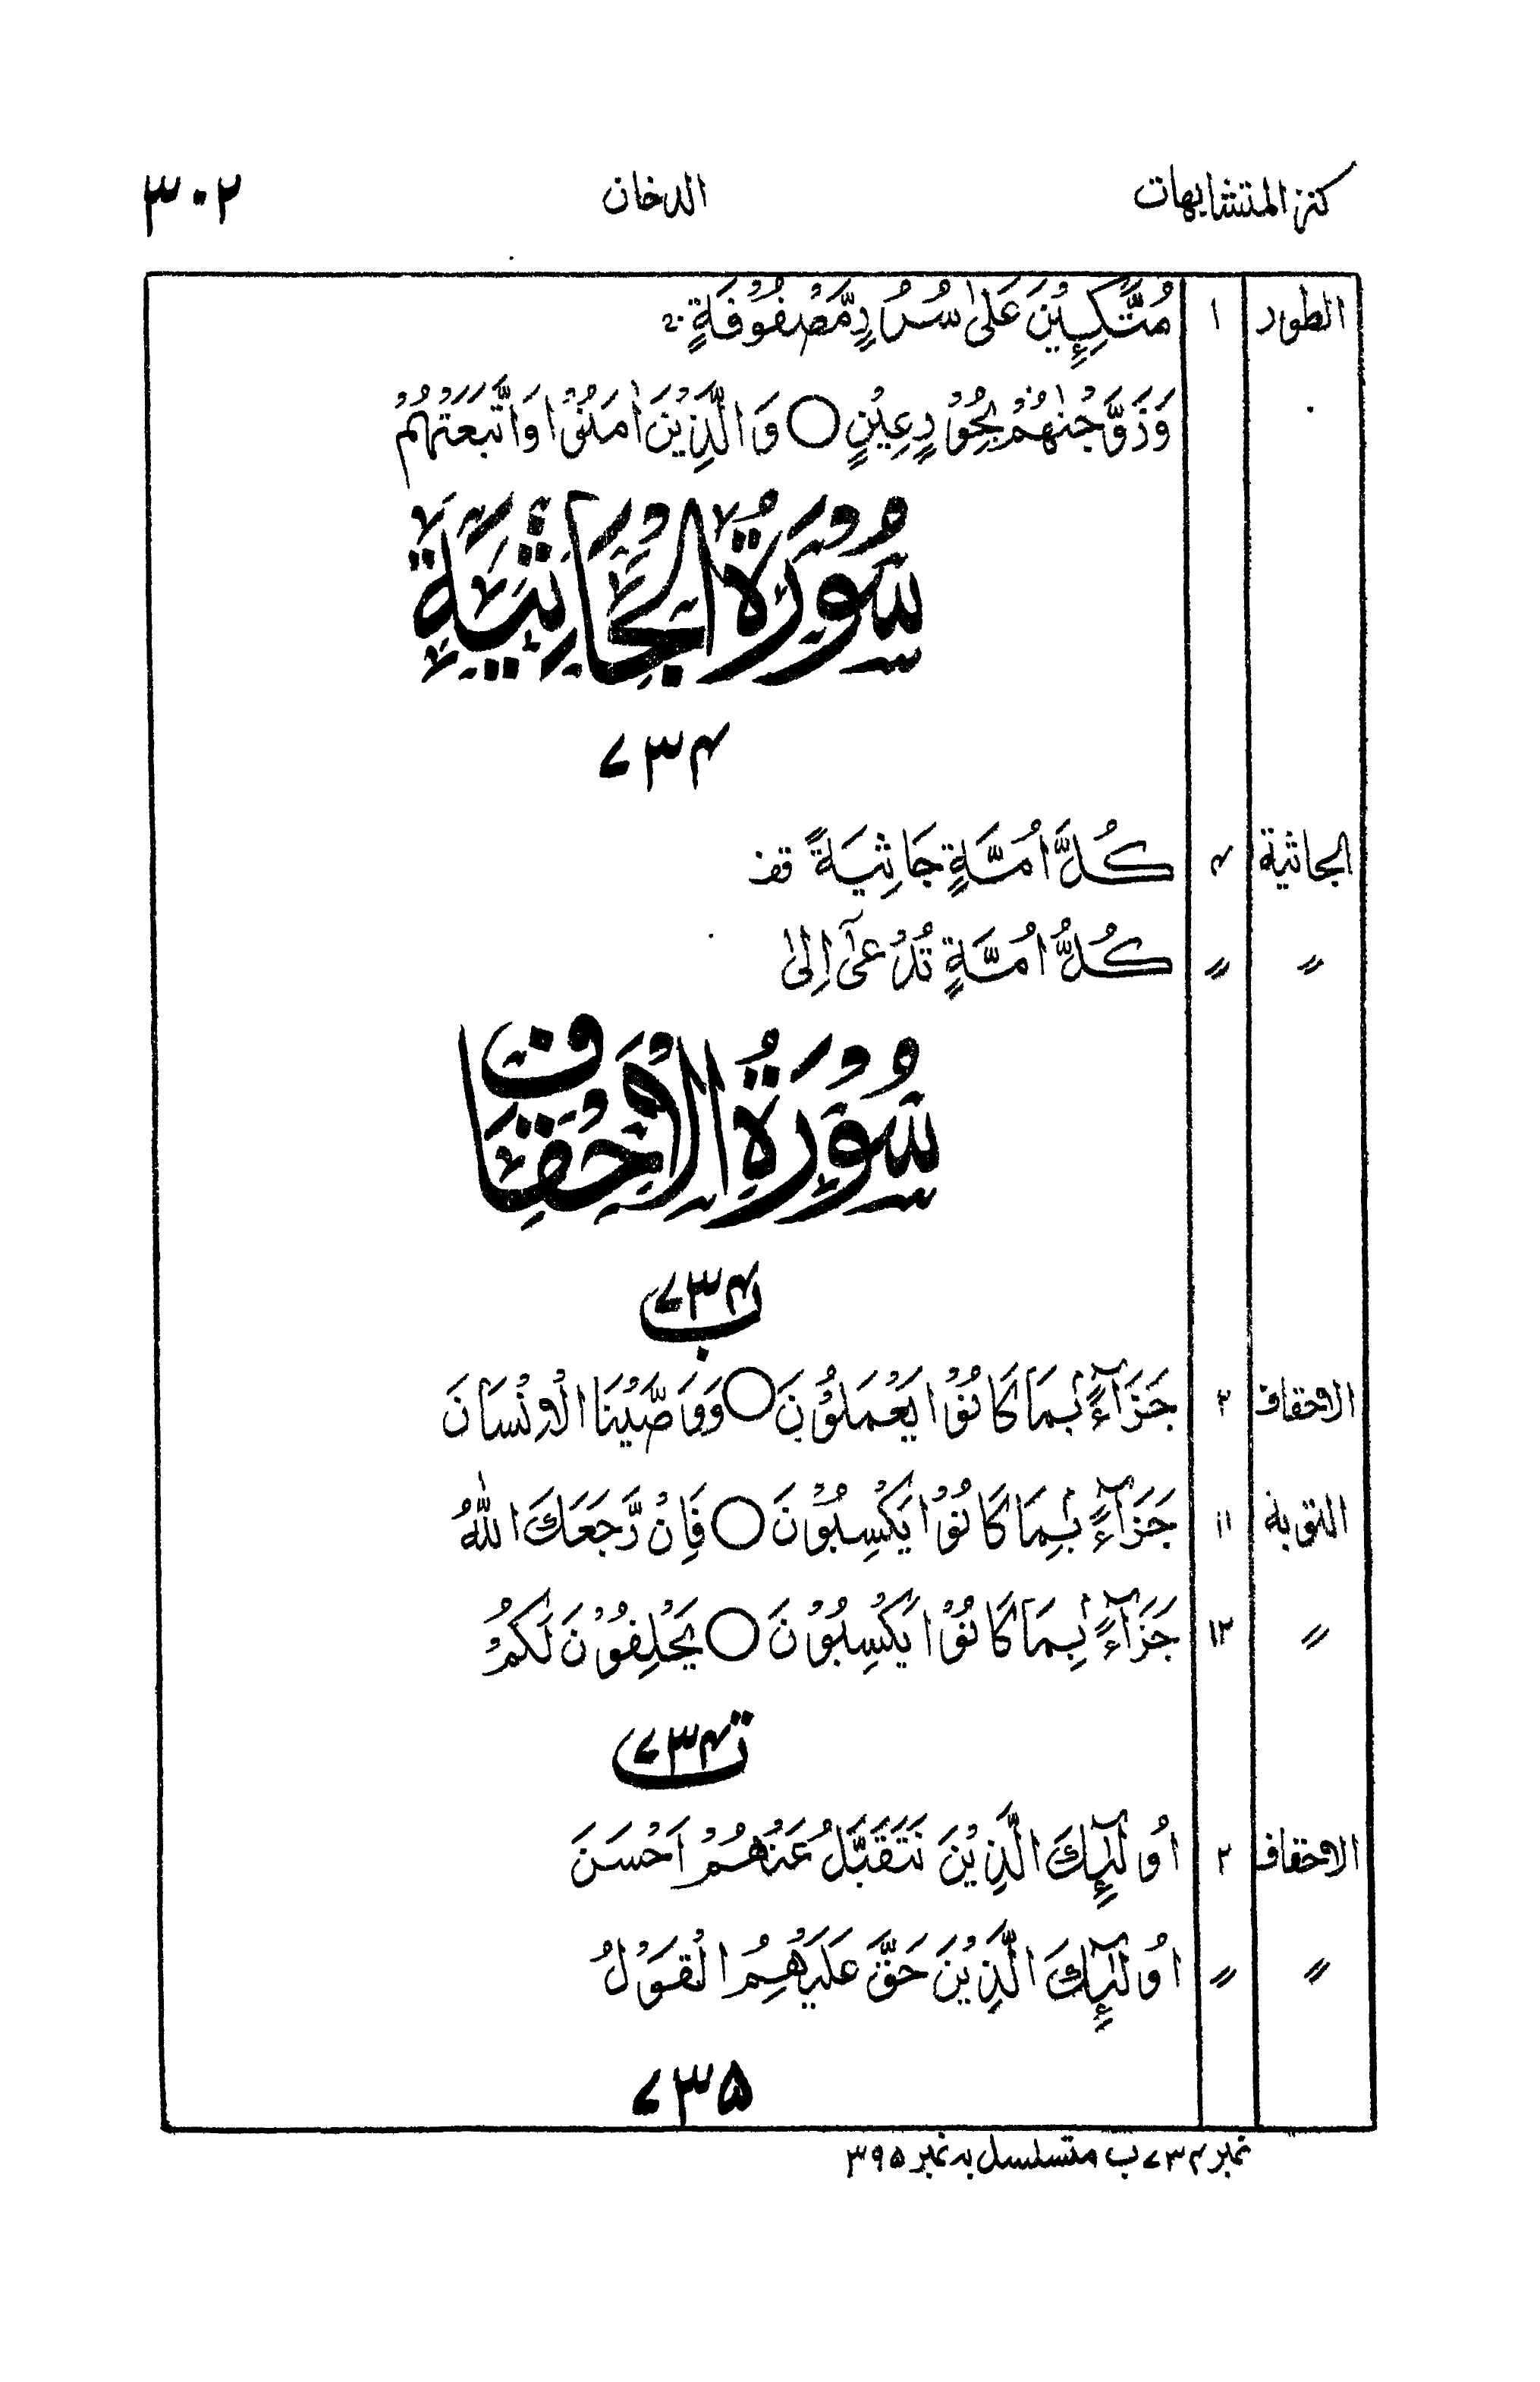 كنز المتشابهات الدخان ۳۰۲
الطور ۱ مُتَّكِـِٕيْنَ عَلٰى سُرُرٍ مَّصْفُوْفَةٍ ۚ
وَزَوَّجْنٰهُمْ بِحُوْرٍ عِيْنٍ ○ وَالَّذِيْنَ اٰمَنُوْا وَاتَّبَعَتْهُمْ
سُوْرَةُ الْجَاثِيَةِ
۷۳۴
الجاثية ۴ كُلَّ اُمَّةٍ جَاثِيَةً قف
〃 〃 كُلُّ اُمَّةٍ تُدْعٰٓى اِلٰى
سُوْرَةُ الْاَحْقَافِ
۷۳۴ب
الاحقاف ۲ جَزَآءًۢ بِمَا كَانُوْا يَعْمَلُوْنَ ○ وَوَصَّيْنَا الْاِنْسَانَ
التوبة ۱۱ جَزَآءًۢ بِمَا كَانُوْا يَكْسِبُوْنَ ○ فَاِنْ رَّجَعَكَ اللّٰهُ
〃 ۱۲ جَزَآءًۢ بِمَا كَانُوْا يَكْسِبُوْنَ ○ يَحْلِفُوْنَ لَكُمْ
۷۳۴ت
الاحقاف ۲ اُولٰٓئِكَ الَّذِيْنَ نَتَقَبَّلُ عَنْهُمْ اَحْسَنَ
〃 〃 اُولٰٓئِكَ الَّذِيْنَ حَقَّ عَلَيْهِمُ الْقَوْلُ
۷۳۵
نمبر ۷۳۴ب متسلسل بہ نمبر ۳۹۵